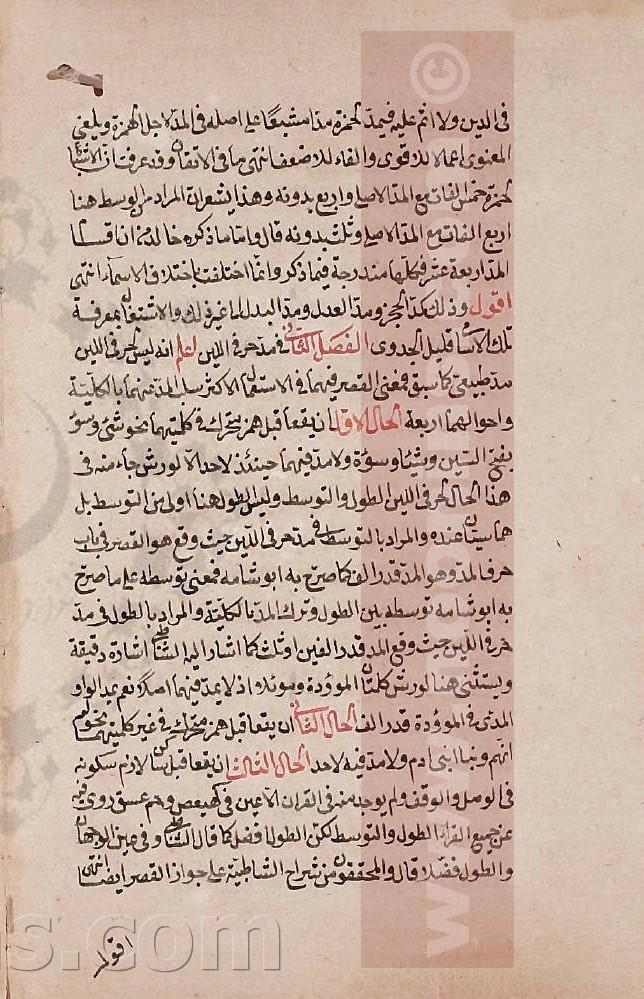 فى الدين ولا اثم عليه فيمد لحمزة مدا مشبعا على اصله فى المد لاجل الهمزة ويلغى
المعنوى اعمالا للاقوى والغاء للاضعف انتهى ما فى الاتقان وقد عرفت ان الاشباع
لحمزة خمس الفات مع المد الاصلى واربع بدونه وهذا يشعر ان المراد من الوسط هنا
اربع الفات مع المد الاصلى وثلث بدونه قال واما ما ذكره خالد من ان اقسام
المد اربعة عشر فكلها مندرجة فيما ذكر وانما اختلفت باختلاف الاسماء انتهى
اقول وذلك كمد الحجز ومد العدل ومد البدل الى غير ذلك والاشتغال بمعرفة
تلك الاسماء قليل الجدوى الفصل الثانى فى مد حرفى اللين اعلم انه ليس لحرفى اللين
مد طبيعى كما سبق فمعنى القصر فيهما فى الاستعمال الاكثر سلب المد عنهما بالكلية
واحوالهما اربعة الحال الاول ان يقعا قبل همز متحرك فى كلمتهما نحو شئ وسوء
بفتح السين وشيئا وسوءة ولا مد فيهما حينئذ لاحد الا لورش جاء منه فى
هذا الحال لحرفى اللين الطول والتوسط وليس الطول هنا اولى من التوسط بل
هما سيان عنده والمراد بالتوسط فى مد حرفى اللين حيث وقع هو القصر فى باب
حرف المد وهو المد قدر الف كما صرح به ابو شامه فمعنى توسطه على ما صرح
به ابو شامه توسطه بين الطول وترك المد بالكلية والمراد بالطول فى مد
حرفى اللين حيث وقع المد قدر الفين او ثلث كما اشار اليه الشاطبى اشارة دقيقة
ويستثنى هنا لورش كلمتان الموؤدة وموئلا اذ لا يمد فيهما اصلا نعم يمد الواو
المدى فى الموؤدة قدر الف الحال الثانى ان يقعا قبل همز متحرك فى غير كلمتهما نحو لو
انهم ونبا ابنى ادم ولا مد فيه لاحد الحال الثالث ان يقعا قبل ساكن لازم سكونه
فى الوصل والوقف ولم يوجد منه فى القران الا عين فى كهيعص وحم عسق روى فيه
عن جميع القراء الطول والتوسط لكن الطول افضل كما قال الشاطبى وفى عين الوجهان
والطول فضلا قال والمحققون من شراح الشاطبية على جواز القصر ايضا انتهى
اقول
s.com